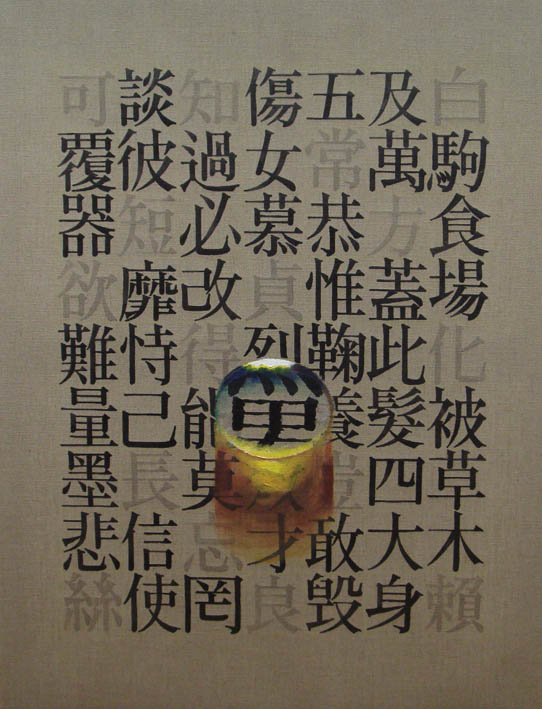 白駒食場化被草木賴
及萬方蓋此髮四大身
五常恭惟鞠養豈敢毀
傷女慕貞烈男效才良
知過必改得能莫忘罔
談彼短靡恃己長信使
可覆器欲難量墨悲絲